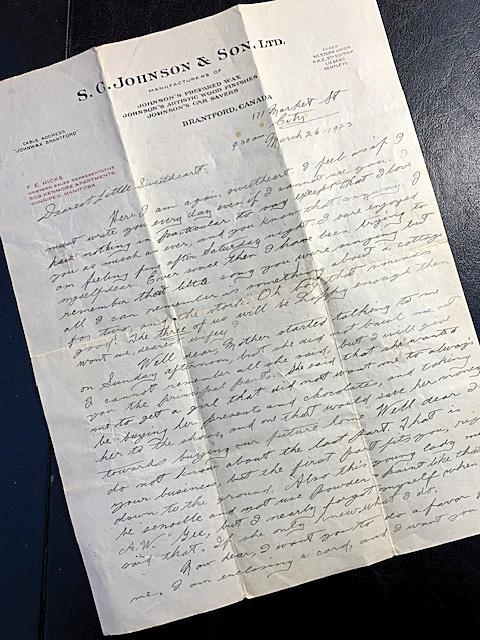 S. C. JOHNSON & SON, LTD.
MANUFACTURERS OF
JOHNSON'S PREPARED WAX
JOHNSON'S ARTISTIC WOOD FINISHES
JOHNSON'S CAR SAVERS
BRANTFORD, CANADA
CODES
WESTERN UNION
A.B.C. 5TH EDITION
LIEBERS
BENTLEYS
CABLE ADDRESS
"JOHNWAX, BRANTFORD"
F. E. HICKS,
WESTERN SALES REPRESENTATIVE
509 KENMORE APARTMENTS,
WINNIPEG, MANITOBA
171 Market St
City
9 30 am March 26 - 1923
Dearest Little Sweetheart:
Here I am again sweetheart, I feel as if I
must write you every day even if I cannot see you. I
have nothing in particular to say except that I love
you as much as ever, and you know that anyway. I
am feeling fine after Saturday night I sure enjoyed
myself dear. Ever since then I have been trying to
remember that little song you were singing but
all I can remember is something about "a cottage
for two, and the stork. Oh boy that means
The three of us will be happy enough then
wont us, dearest
Well dear, Mother started talking to me
on Sunday afternoon, but she did not bawl me out
I cannot remember all she said, but I will give
you the principal parts. She said that she wanted
me to get a girl that did not want me to always
be buying her presents and chocolates, and taking
her to the shows, and one that would save her money
towards buying our future home. Well dear I
do not know about the last part. That is
your business but the first part fits you, right
down to the ground. Also this young lady must
be sensible and not use powder & paint like the
A.W. Gee, but I nearly forgot myself when
said that. If she only knew what I do.
Now dear, I want you to do a favor for
me. I am enclosing a card, and I want you